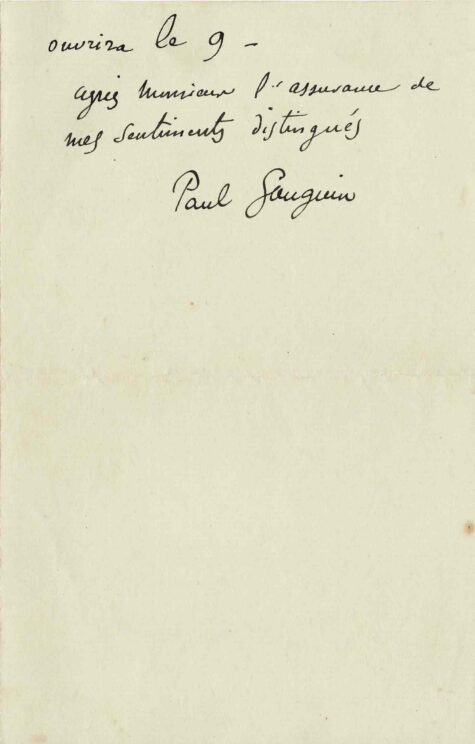 ouvrira le 9 –
agréez Monsieur l'assurance de
mes sentiments distingués
Paul Gauguin